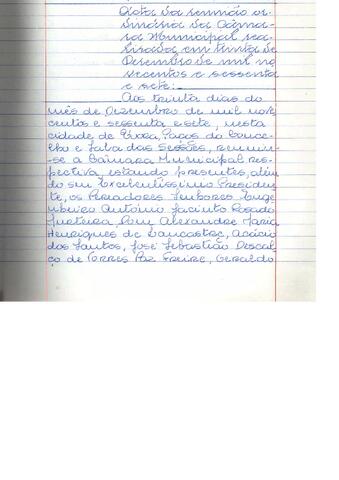 Acta da reunião or-
dinária da Câma-
ra Municipal rea-
lizada em trinta de
Dezembro de mil no
vecentos e sessenta
e sete:
Aos trinta dias do
mês de Dezembro de mil nove
centos e sessenta e sete, nesta
cidade de Évora, Paços do Conce-
lho e Sala das Sessões, reuniu-
-se a Câmara Municipal res-
pectiva, estando presentes, além
do seu Excelentíssimo Presiden
te, os Vereadores Senhores Enge
nheiro António Jacinto Rosado
Dom Alexandre Maria
Henriques de Lancastre, Acácio
dos Santos, José Sebastião Descal
ço de Torres Vaz Freire, Geraldo